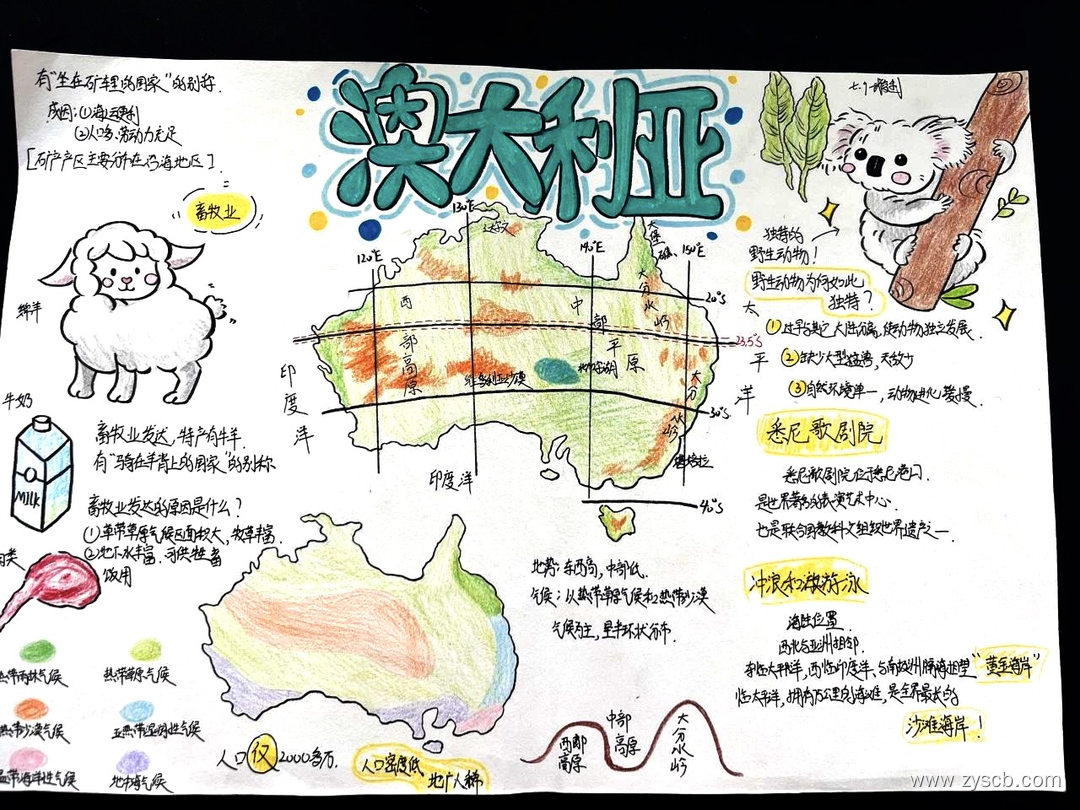 澳大利亚
有"坐在矿车里的国家"的别称.
成因:①海运便利
②人口多、劳动力充足
[矿产产区主要分布在沿海地区].
畜牧业
绵羊
牛奶
MILK
畜牧业发达,特产有牛羊.
有"骑在羊背上的国家"的别称
畜牧业发达的原因是什么?
①草带草原气候区面积大,牧草丰富.
②地下水丰富.可供牲畜
饮用
肉类
热带雨林气候
热带草原气候
热带沙漠气候
亚热带湿润性气候
温带海洋性气候
地中海气候
120°E
130°E
140°E
150°E
20°S
23.5°S
30°S
40°S
大堡礁
大分水岭
西部高原
中部平原
大分水岭
印度洋
太平洋
印度洋
地势:东西高,中部低.
气候:以热带草原气候和热带沙漠
气候为主,呈半环状分布.
人口仅2000多万.
人口密度低
地广人稀
西部
高原
中部
高原
大分水岭
独特的
野生动物!
野生动物为何如此
独特?
①过早与其它大陆分离,使动物独立发展.
②缺少大型猛兽,天敌少
③自然环境单一,动物进化缓慢.
悉尼歌剧院
悉尼歌剧院位于悉尼港口.
是世界著名的表演艺术中心.
也是联合国教科文组织世界遗产之一.
冲浪和游泳
海陆位置
西北与亚洲相邻.
东临太平洋,西临印度洋、与南极洲隔海相望"黄金海岸"
临太平洋,拥有万公里的海滩,是全界最长的
沙滩海岸!
www.zyscb.com